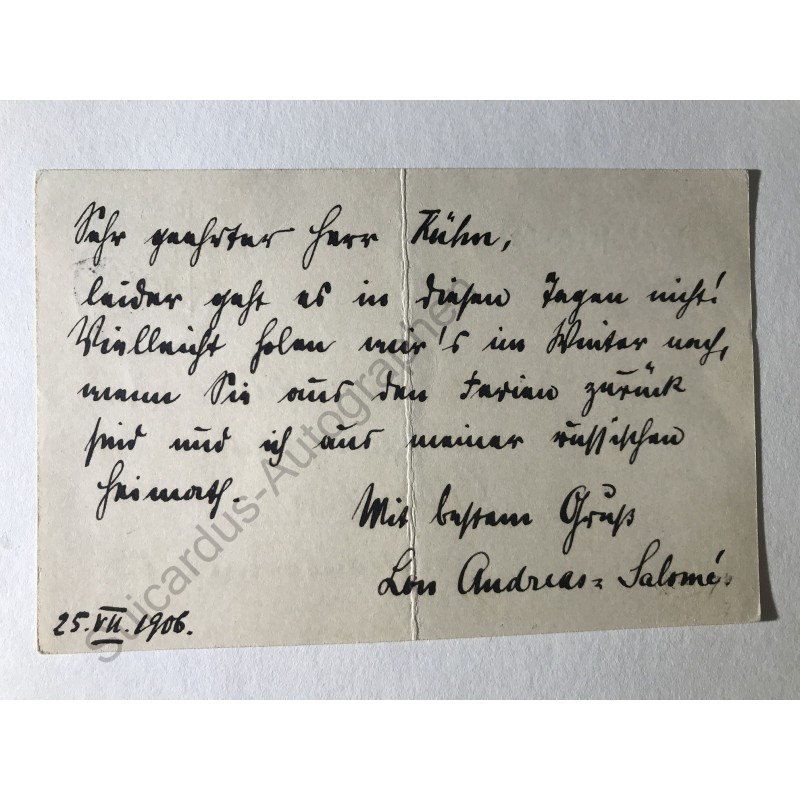 Sehr geehrter Herr Kühn,
leider geht es in diesen Tagen nicht!
Vielleicht holen wir's im Winter nach,
wenn Sie aus den Ferien zurück
sind und ich aus meiner russischen
Heimath.
Mit bestem Gruß
Lou Andreas-Salomé.
25.VII.1906.
Stuicardus-Autographen